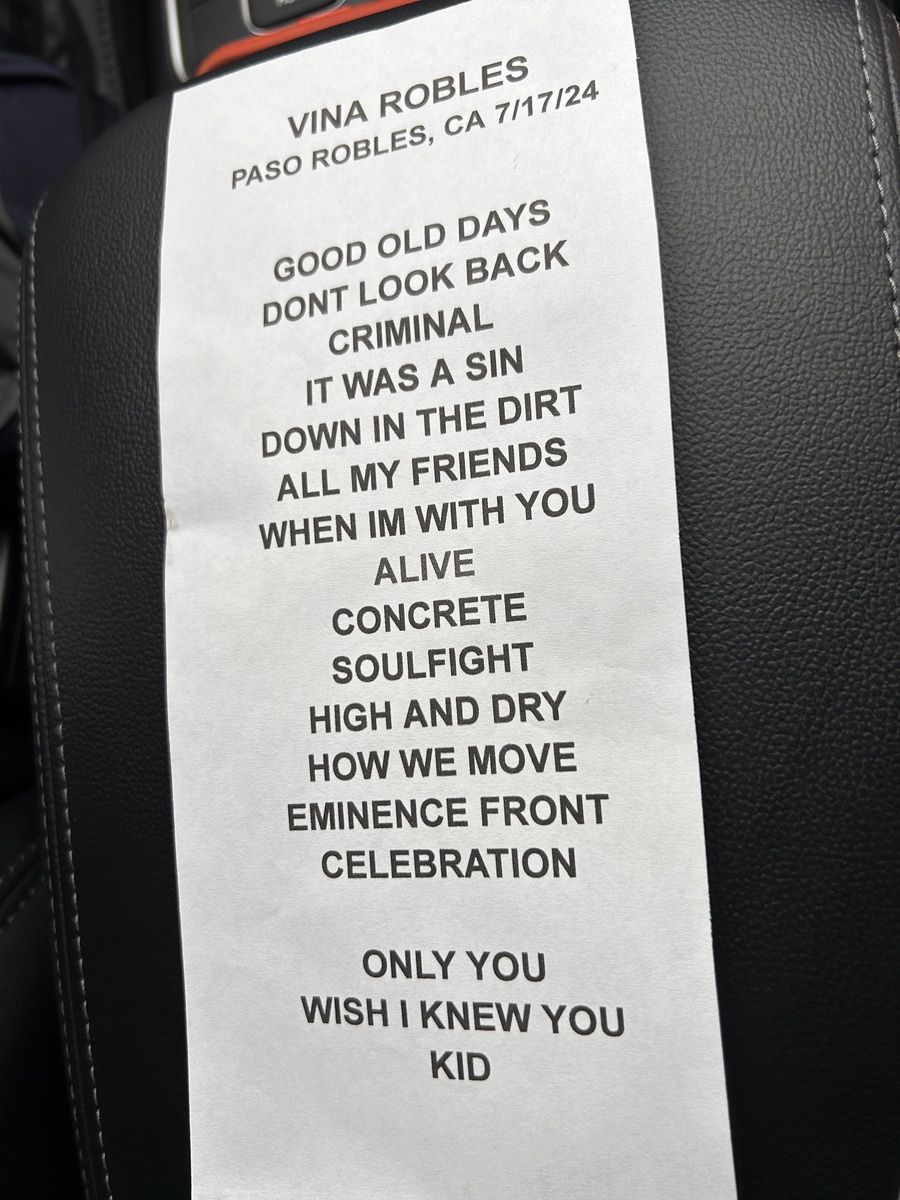 VINA ROBLES
PASO ROBLES, CA 7/17/24
GOOD OLD DAYS
DONT LOOK BACK
CRIMINAL
IT WAS A SIN
DOWN IN THE DIRT
ALL MY FRIENDS
WHEN IM WITH YOU
ALIVE
CONCRETE
SOULFIGHT
HIGH AND DRY
HOW WE MOVE
EMINENCE FRONT
CELEBRATION
ONLY YOU
WISH I KNEW YOU
KID